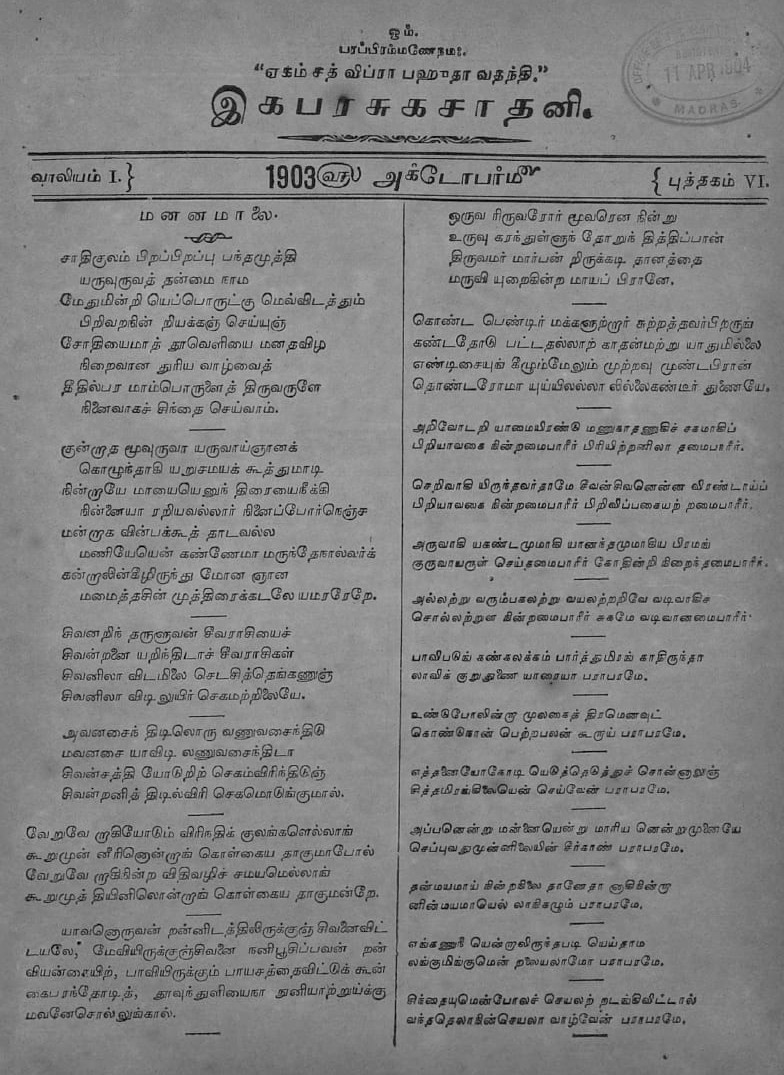 ஓம்.
பரப்பிரம்மணேநமஃ.
“ஏகம் சத் விப்ரா பஹுதா வதந்தி.”
இகபரசுகசாதனி.
11 APR 1904
MADRAS
வாலியம் I.}
1903 ௵ அக்டோபர்௴
{புத்தகம் VI.
மனனமாலை.
சாதிகுலம் பிறப்பிறப்பு பந்தமுத்தி
யருவுருவத் தன்மை நாம
மேதுமின்றி யெப்பொருட்கு மெவ்விடத்தும்
பிறிவறநின் றியக்கஞ் செய்யுஞ்
சோதியைமாத் தூவெளியை மனதவிழ
நிறைவான துரிய வாழ்வைத்
தீதில்பர மாம்பொருளைத் திருவருளே
நினைவாகச் சிந்தை செய்வாம்.
குன்றாத மூவுருவா யருவாய்ஞானக்
கொழுந்தாகி யறுசமயக் கூத்துமாடி
நின்றாயே மாயையெனுந் திரையைநீக்கி
நின்னையா ரறியவல்லார் நினைப்போர்நெஞ்ச
மன்றாக வின்பக்கூத் தாடவல்ல
மணியேயென் கண்ணேமா மருந்தேநால்வர்க்
கன்றாலின்கீழிருந்து மோன ஞான
மமைத்தசின் முத்திரைக்கடலே யமரரேறே.
சிவனறிந் தருளுவன் சீவராசியைச்
சிவன்றனை யறிந்திடாச் சீவராசிகள்
சிவனிலா விடமிலை செடசித்தெங்கணுஞ்
சிவனிலா விடிலுயிர் செகமற்றிலையே.
அவனசைந் திடிலொரு வணுவசைந்திடு
மவனசை யாவிடி லணுவசைந்திடா
சிவன்சத்தி யோடுறிற் செகம்விரிந்திடுஞ்
சிவன்றனித் திடில்விரி செகமொடுங்குமால்.
வேறுவே றாகியோடும் விரிநதிக் குலங்களெல்லாங்
கூறுமுன் னீரினொன்றாங் கொள்கைய தாகுமாபோல்
வேறுவே றாகிகின்ற விதிவழிச் சமயமெல்லாங்
கூறுமுத் தியினிலொன்றாங் கொள்கைய தாகுமன்றே.
யாவனொருவன் றன்னிடத்திலிருக்குஞ் சிவனைவிட்
டயலே, மேவியிருக்குஞ்சிவனை நனிபூசிப்பவன் றன்
வியன்கையிற், பாவியிருக்கும் பாயசத்தைவிட்டுக் கூன்
கைபரந்தோடித், தூவுந்துளியைநா துனியாற்றுய்க்கு
மவனேசொல்லுங்கால்.
ஒருவ ரிருவரோர் மூவரென நின்று
உருவு கரந்துள்ளுந் தோறுந் தித்திப்பான்
திருவமர் மார்பன் றிருக்கடி தானத்தை
மருவி யுறைகின்ற மாயப் பிரானே.
கொண்ட பெண்டிர் மக்களுற்றார் சுற்றத்தவர்பிறருங்
கண்டதோடு பட்டதல்லாற் காதன்மற்று யாதுமில்லை
எண்டிசையுங் கீழும்மேலும் முற்றவு முண்டபிரான்
தொண்டரோமா யுய்யிலல்லா லில்லைகண்டீர் துணையே.
அறிவோடறி யாமையிரண்டு மணுகாதணுகிச் சகமாகிப்
பிறியாவகை கின்றமைபாரீர் பிரியிற்றனிலா தமைபாரீர்.
செறிவாகி யிருந்தவர்தாமே சிவன்சிவனென்ன விரண்டாய்ப்
பிறியாவகை கின்றமைபாரீர் பிறிவிப்பகையற் றமைபாரீர்.
அருவாகி யகண்டமுமாகி யானந்தமுமாகிய பிரமங்
குருவாயருள் செய்தமைபாரீர் கோதின்றி கிறைந்தமைபாரீர்.
அல்லற்று வரும்பகலற்று வயலற்றறிவே வடிவாகிச
சொல்லற்றுன கின்றமைபாரீர் சுகமே வடிவானமைபாரீர்.
பாவிபடுங் கண்கலக்கம் பார்த்துமிரங் காதிருந்தா
லாவிக் குறுதுணை யாரையா பராபரமே.
உண்டுபோலின்றா முலகைத் திரமெனவுட்
கொண்டுநான் பெற்றபலன் கூறாய் பராபரமே.
எத்தனையோகோடி யெடுத்தெடுத்துச் சொன்னாலுஞ்
சித்தமிரங்கிலையென் செய்வேன் பராபரமே.
அப்பனென்று மன்னையென்று மாரிய னென்றுமுனையே
செப்புவதுமுன்னிலையின் சீர்காண் பராபரமே.
தன்மயமாய் கின்றநிலை தானேதா னாகிகின்றா
னின்மயமாயெல் லாகிகழும் பராபரமே.
எங்கணுநீ யென்றாலிருந்தபடி யெய்தாம
லங்குமிங்குமென் றலையலாமோ பராபரமே.
சிந்தையுமென்போலச் செயலற் றடங்கிவிட்டால்
வந்ததெலாகின்செயலா வாழ்வேன் பராபரமே.